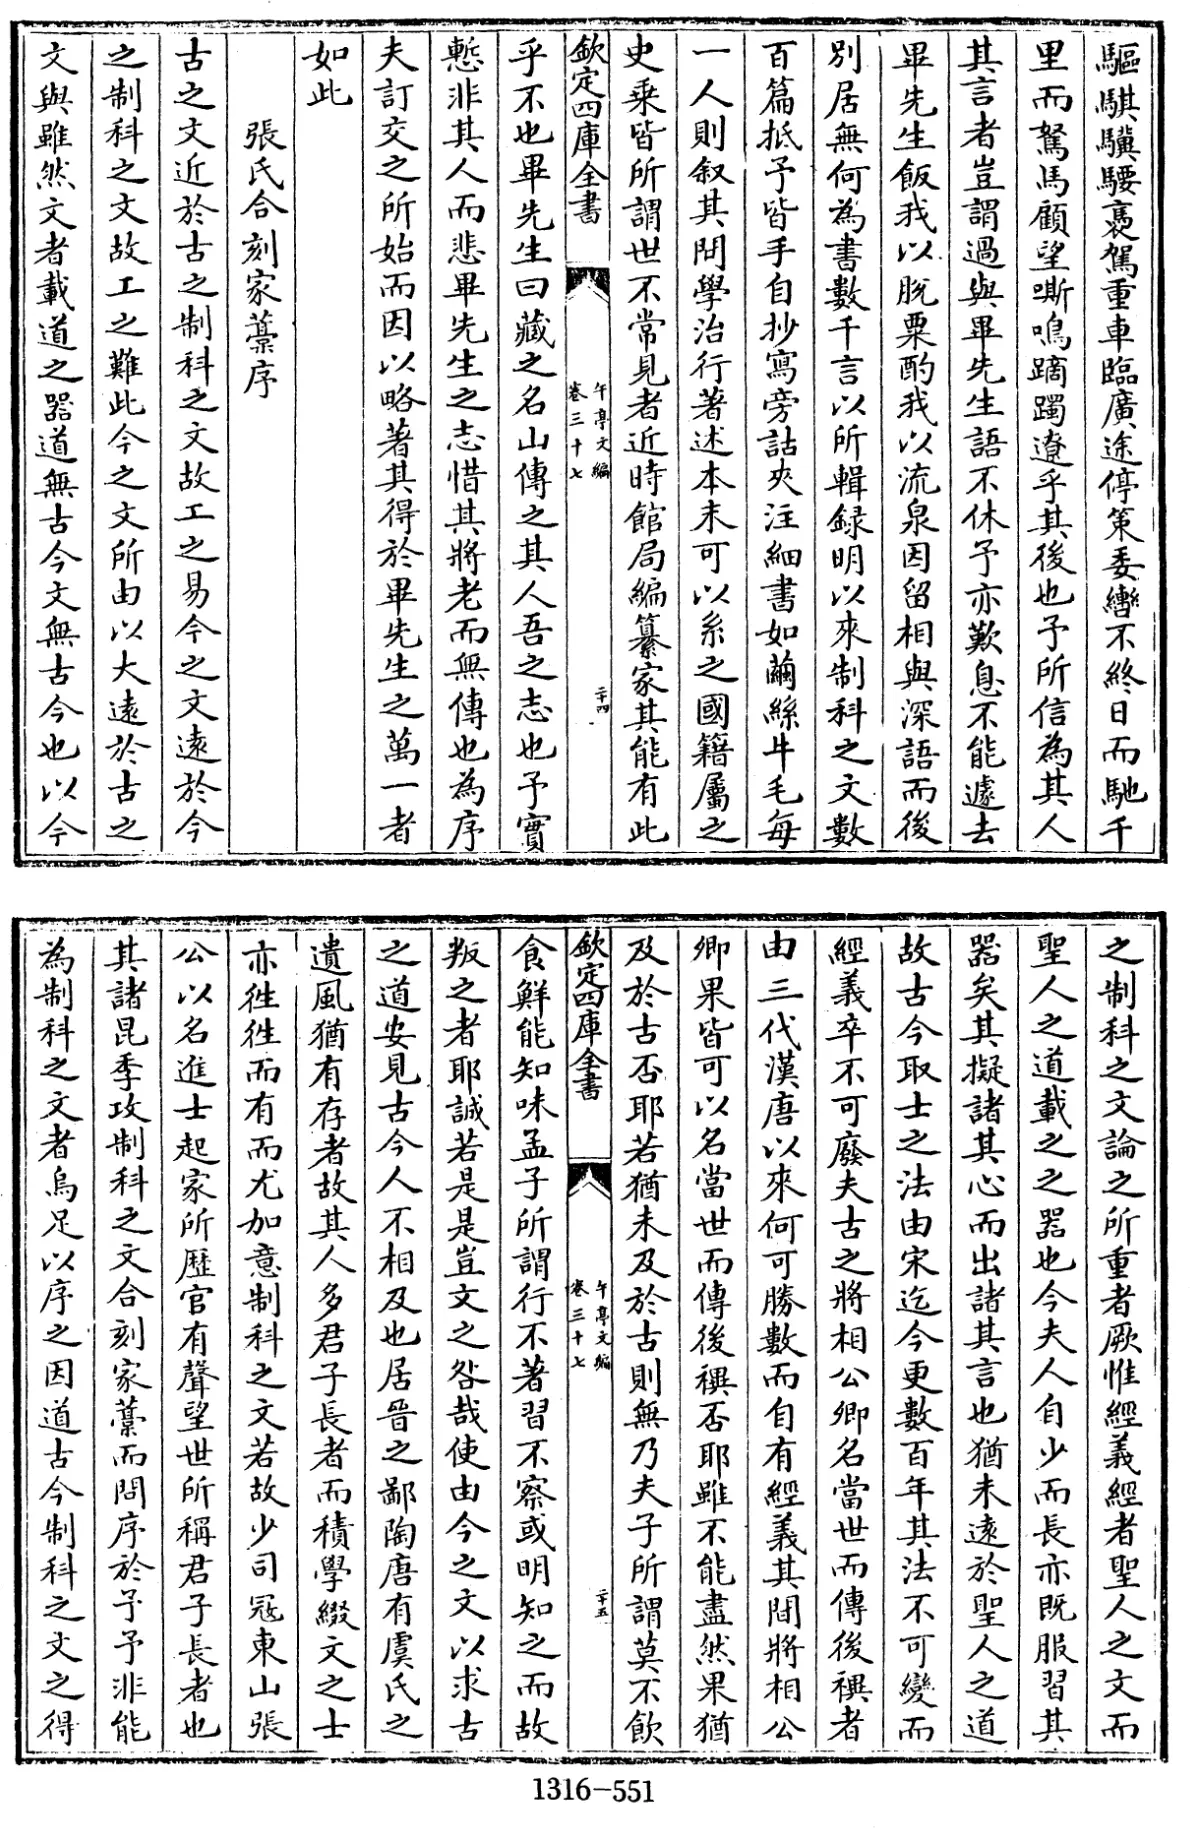 驅騏驥騕褭駕重車臨廣途停策委轡不終日而馳千
里而駑馬顧望嘶鳴蹢躅遼乎其後也予所信為其人
其言者豈謂過與畢先生語不休予亦歎息不能遽去
畢先生飯我以脫粟酌我以流泉因留相與深語而後
別居無何為書數千言以所輯録明以來制科之文數
百篇抵予皆手自抄寫旁詁夾注細書如繭絲牛毛每
一人則叙其問學治行著述本末可以系之國籍屬之
史乘皆所謂世不常見者近時館局編纂家其能有此
欽定四庫全書
午亭文編
卷三十七
二十四
乎不也畢先生曰藏之名山傳之其人吾之志也予實
慙非其人而悲畢先生之志惜其將老而無傳也為序
夫訂交之所始而因以略著其得於畢先生之萬一者
如此
張氏合刻家藁序
古之文近於古之制科之文故工之易今之文遠於今
之制科之文故工之難此今之文所由以大遠於古之
文與雖然文者載道之器道無古今文無古今也以今
之制科之文論之所重者厥惟經義經者聖人之文而
聖人之道載之之器也今夫人自少而長亦既服習其
器矣其擬諸其心而出諸其言也猶未遠於聖人之道
故古今取士之法由宋迄今更數百年其法不可變而
經義卒不可廢夫古之將相公卿名當世而傳後禩者
由三代漢唐以來何可勝數而自有經義其間將相公
卿果皆可以名當世而傳後禩否耶雖不能盡然果猶
及於古否耶若猶未及於古則無乃夫子所謂莫不飲
欽定四庫全書
午亭文編
卷三十七
二十五
食鮮能知味孟子所謂行不著習不察或明知之而故
叛之者耶誠若是是豈文之咎哉使由今之文以求古
之道安見古今人不相及也居晉之鄙陶唐有虞氏之
遺風猶有存者故其人多君子長者而積學綴文之士
亦往往而有而尤加意制科之文若故少司冦東山張
公以名進士起家所歷官有聲望世所稱君子長者也
其諸昆季攻制科之文合刻家藁而問序於予予非能
為制科之文者烏足以序之因道古今制科之文之得
1316-551